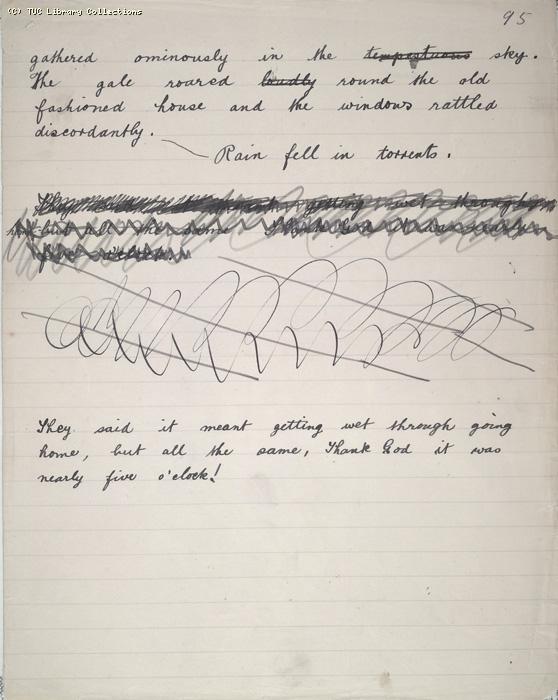 (C) TUC Library Collections
95
gathered ominously in the tempestuous sky.
The gale roared loudly round the old
fashioned house and the windows rattled
discordantly.
Rain fell in torrents.
getting wet through
but all the same Thank God it was nearly
five o'clock
They said it meant getting wet through going
home, but all the same, Thank God it was
nearly five o'clock!